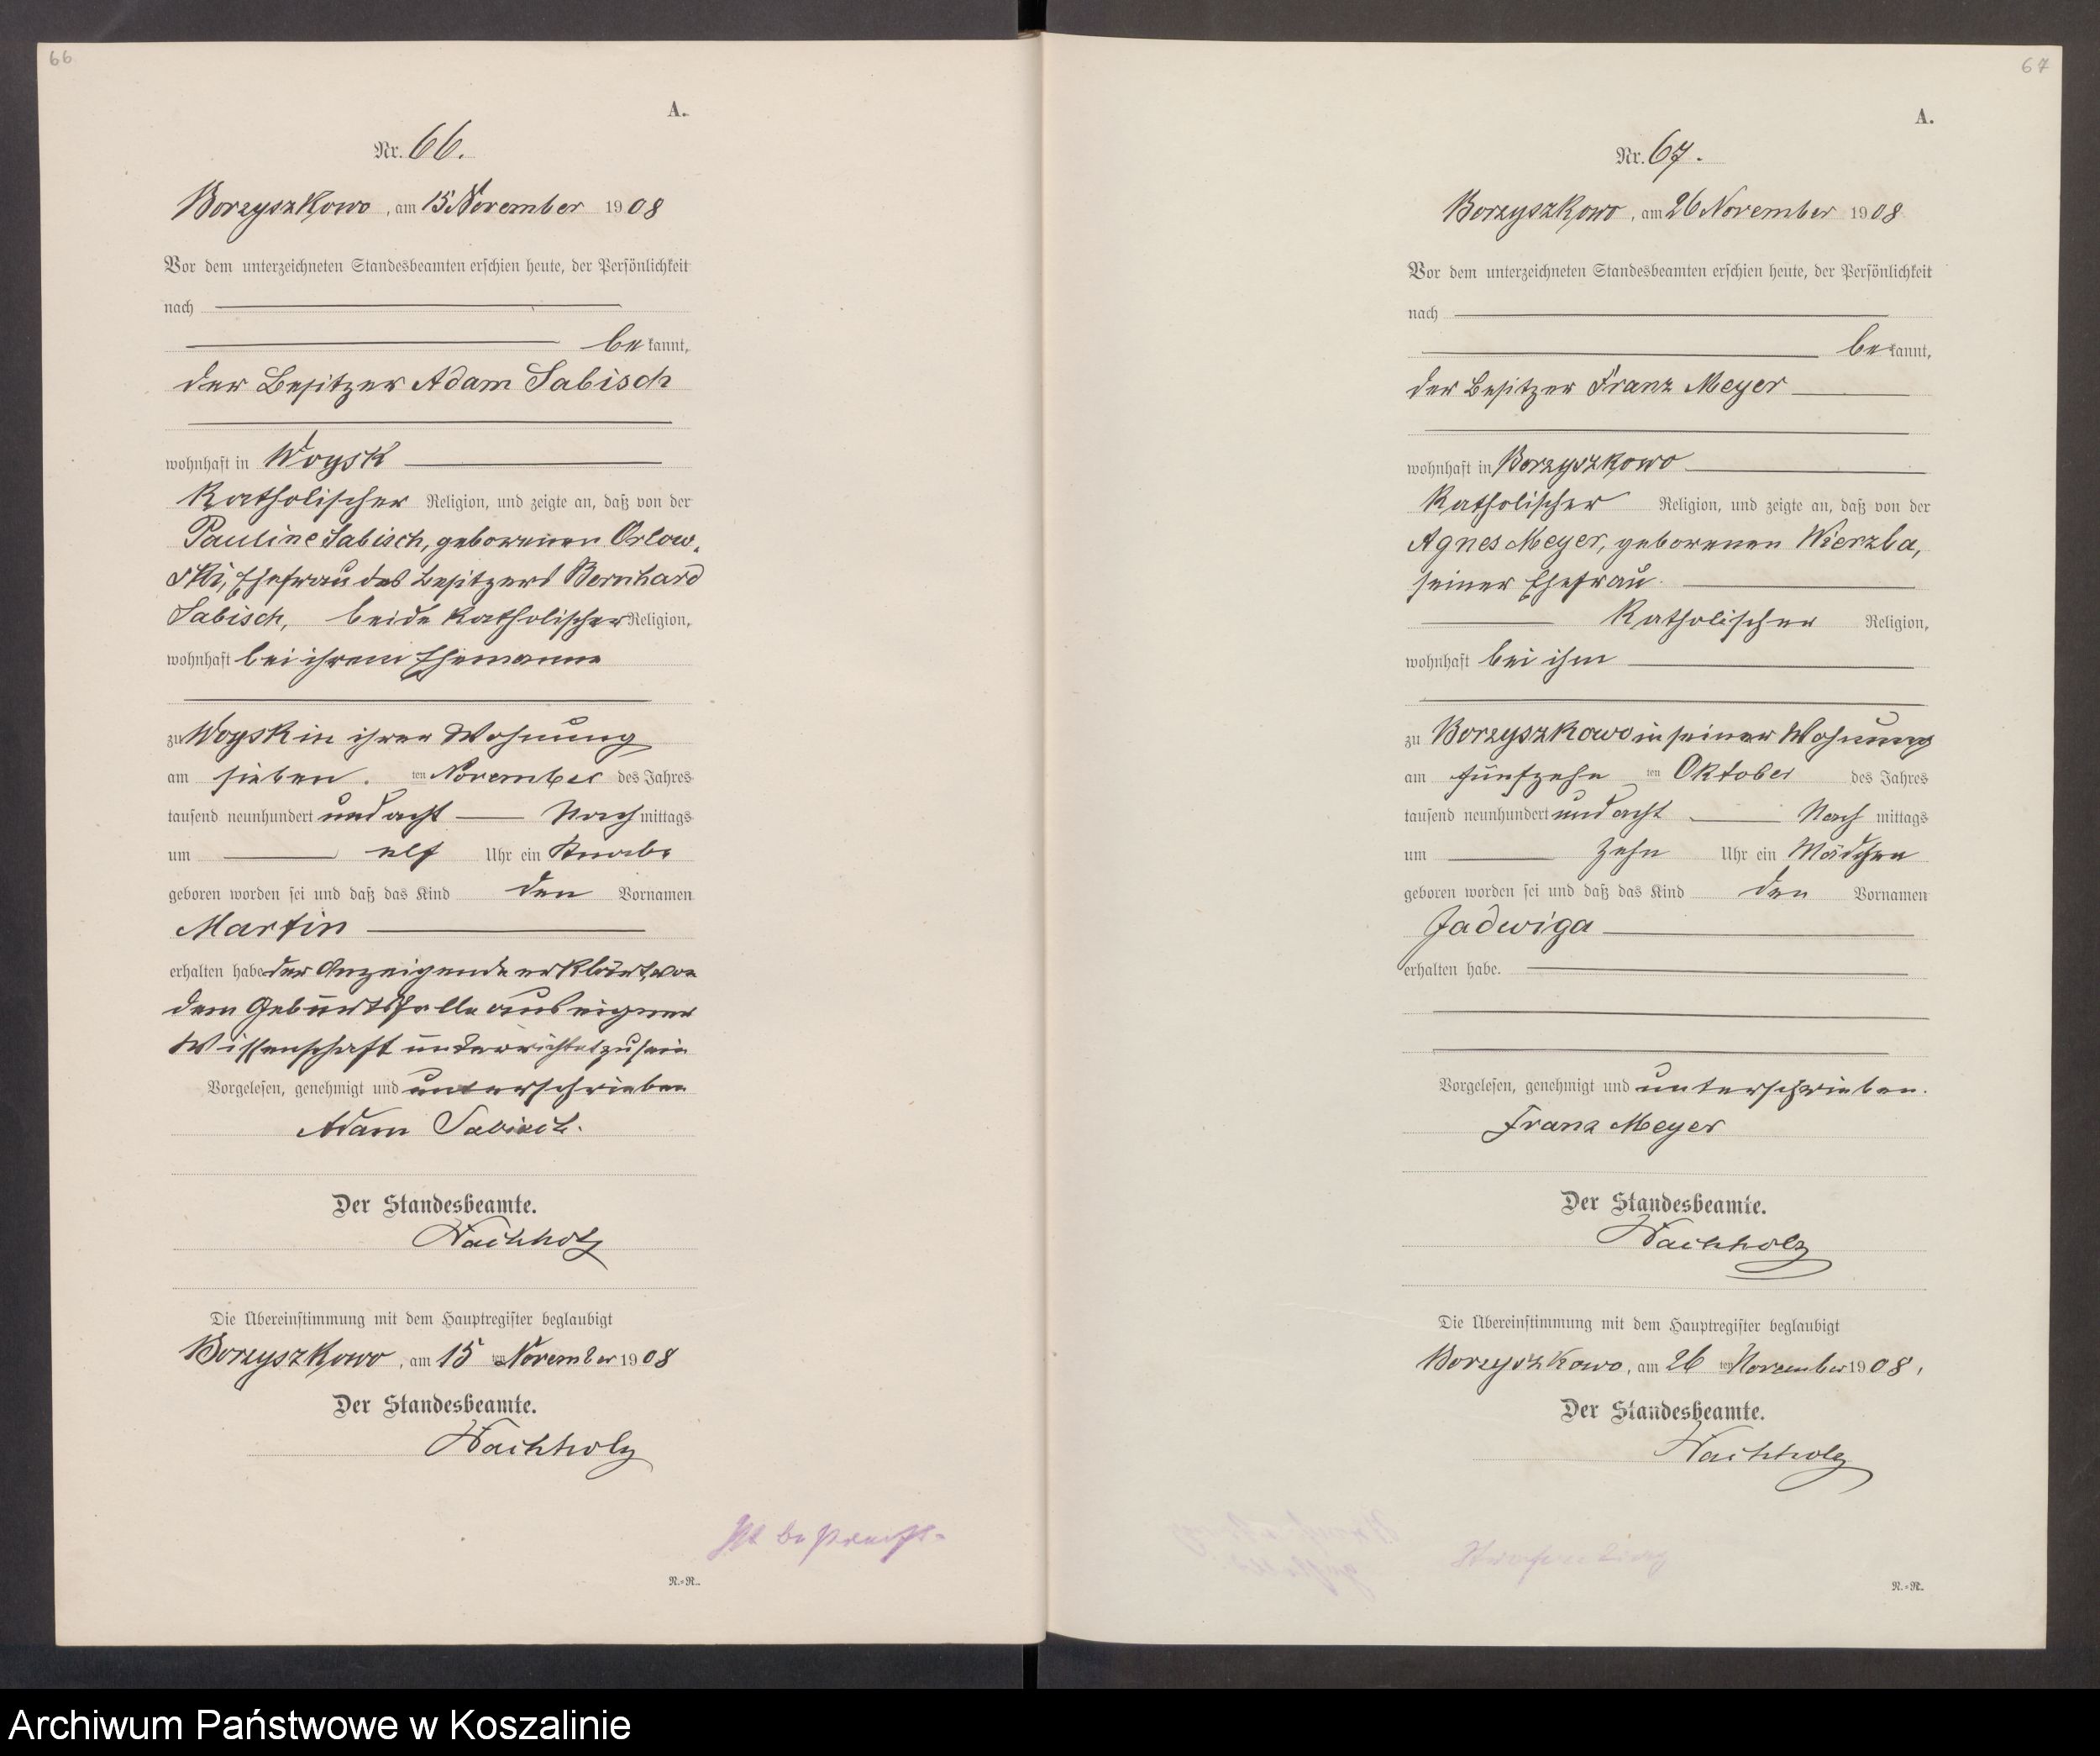 66
A.
Nr. 66.
Borzyszkowo, am 15 November 1908
Vor dem unterzeichneten Standesbeamten erschien heute, der Persönlichkeit
nach
bekannt,
der Besitzer Adam Sabisch
wohnhaft in Woysk
katholischer Religion, und zeigte an, daß von der
Pauline Sabisch, geborenen Orlow-
ski, Ehefrau des Besitzers Bernhard
Sabisch, beide katholischer Religion,
wohnhaft bei ihrem Ehemanne
zu Woysk in ihrer Wohnung
am sieben. ten November des Jahres
tausend neunhundert und acht Nachmittags
um elf Uhr ein Knabe
geboren worden sei und daß das Kind den Vornamen
Martin
erhalten habe der Anzeigende erklärt, von
dem Geburtsfalle aus eigner
Wissenschaft unterrichtet zu sein
Vorgelesen, genehmigt und unterschrieben
Adam Sabisch.
Der Standesbeamte.
Wachholz
Die Übereinstimmung mit dem Hauptregister beglaubigt
Borzyszkowo, am 15 ten November 1908
Der Standesbeamte.
Wachholz
N.=R.
67
A.
Nr. 67.
Borzyszkowo, am 26 November 1908
Vor dem unterzeichneten Standesbeamten erschien heute, der Persönlichkeit
nach
bekannt,
der Besitzer Franz Meyer
wohnhaft in Borzyszkowo
katholischer Religion, und zeigte an, daß von der
Agnes Meyer, geborenen Wierzba,
seiner Ehefrau
katholischer Religion,
wohnhaft bei ihm
zu Borzyszkowo in seiner Wohnung
am fünfzehn ten Oktober des Jahres
tausend neunhundert und acht Nach mittags
um zehn Uhr ein Mädchen
geboren worden sei und daß das Kind den Vornamen
Jadwiga
erhalten habe.
Vorgelesen, genehmigt und unterschrieben.
Franz Meyer
Der Standesbeamte.
Wachholz
Die Übereinstimmung mit dem Hauptregister beglaubigt
Borzyszkowo, am 26 ten November 1908,
Der Standesbeamte.
Wachholz
N.=R.
Archiwum Państwowe w Koszalinie